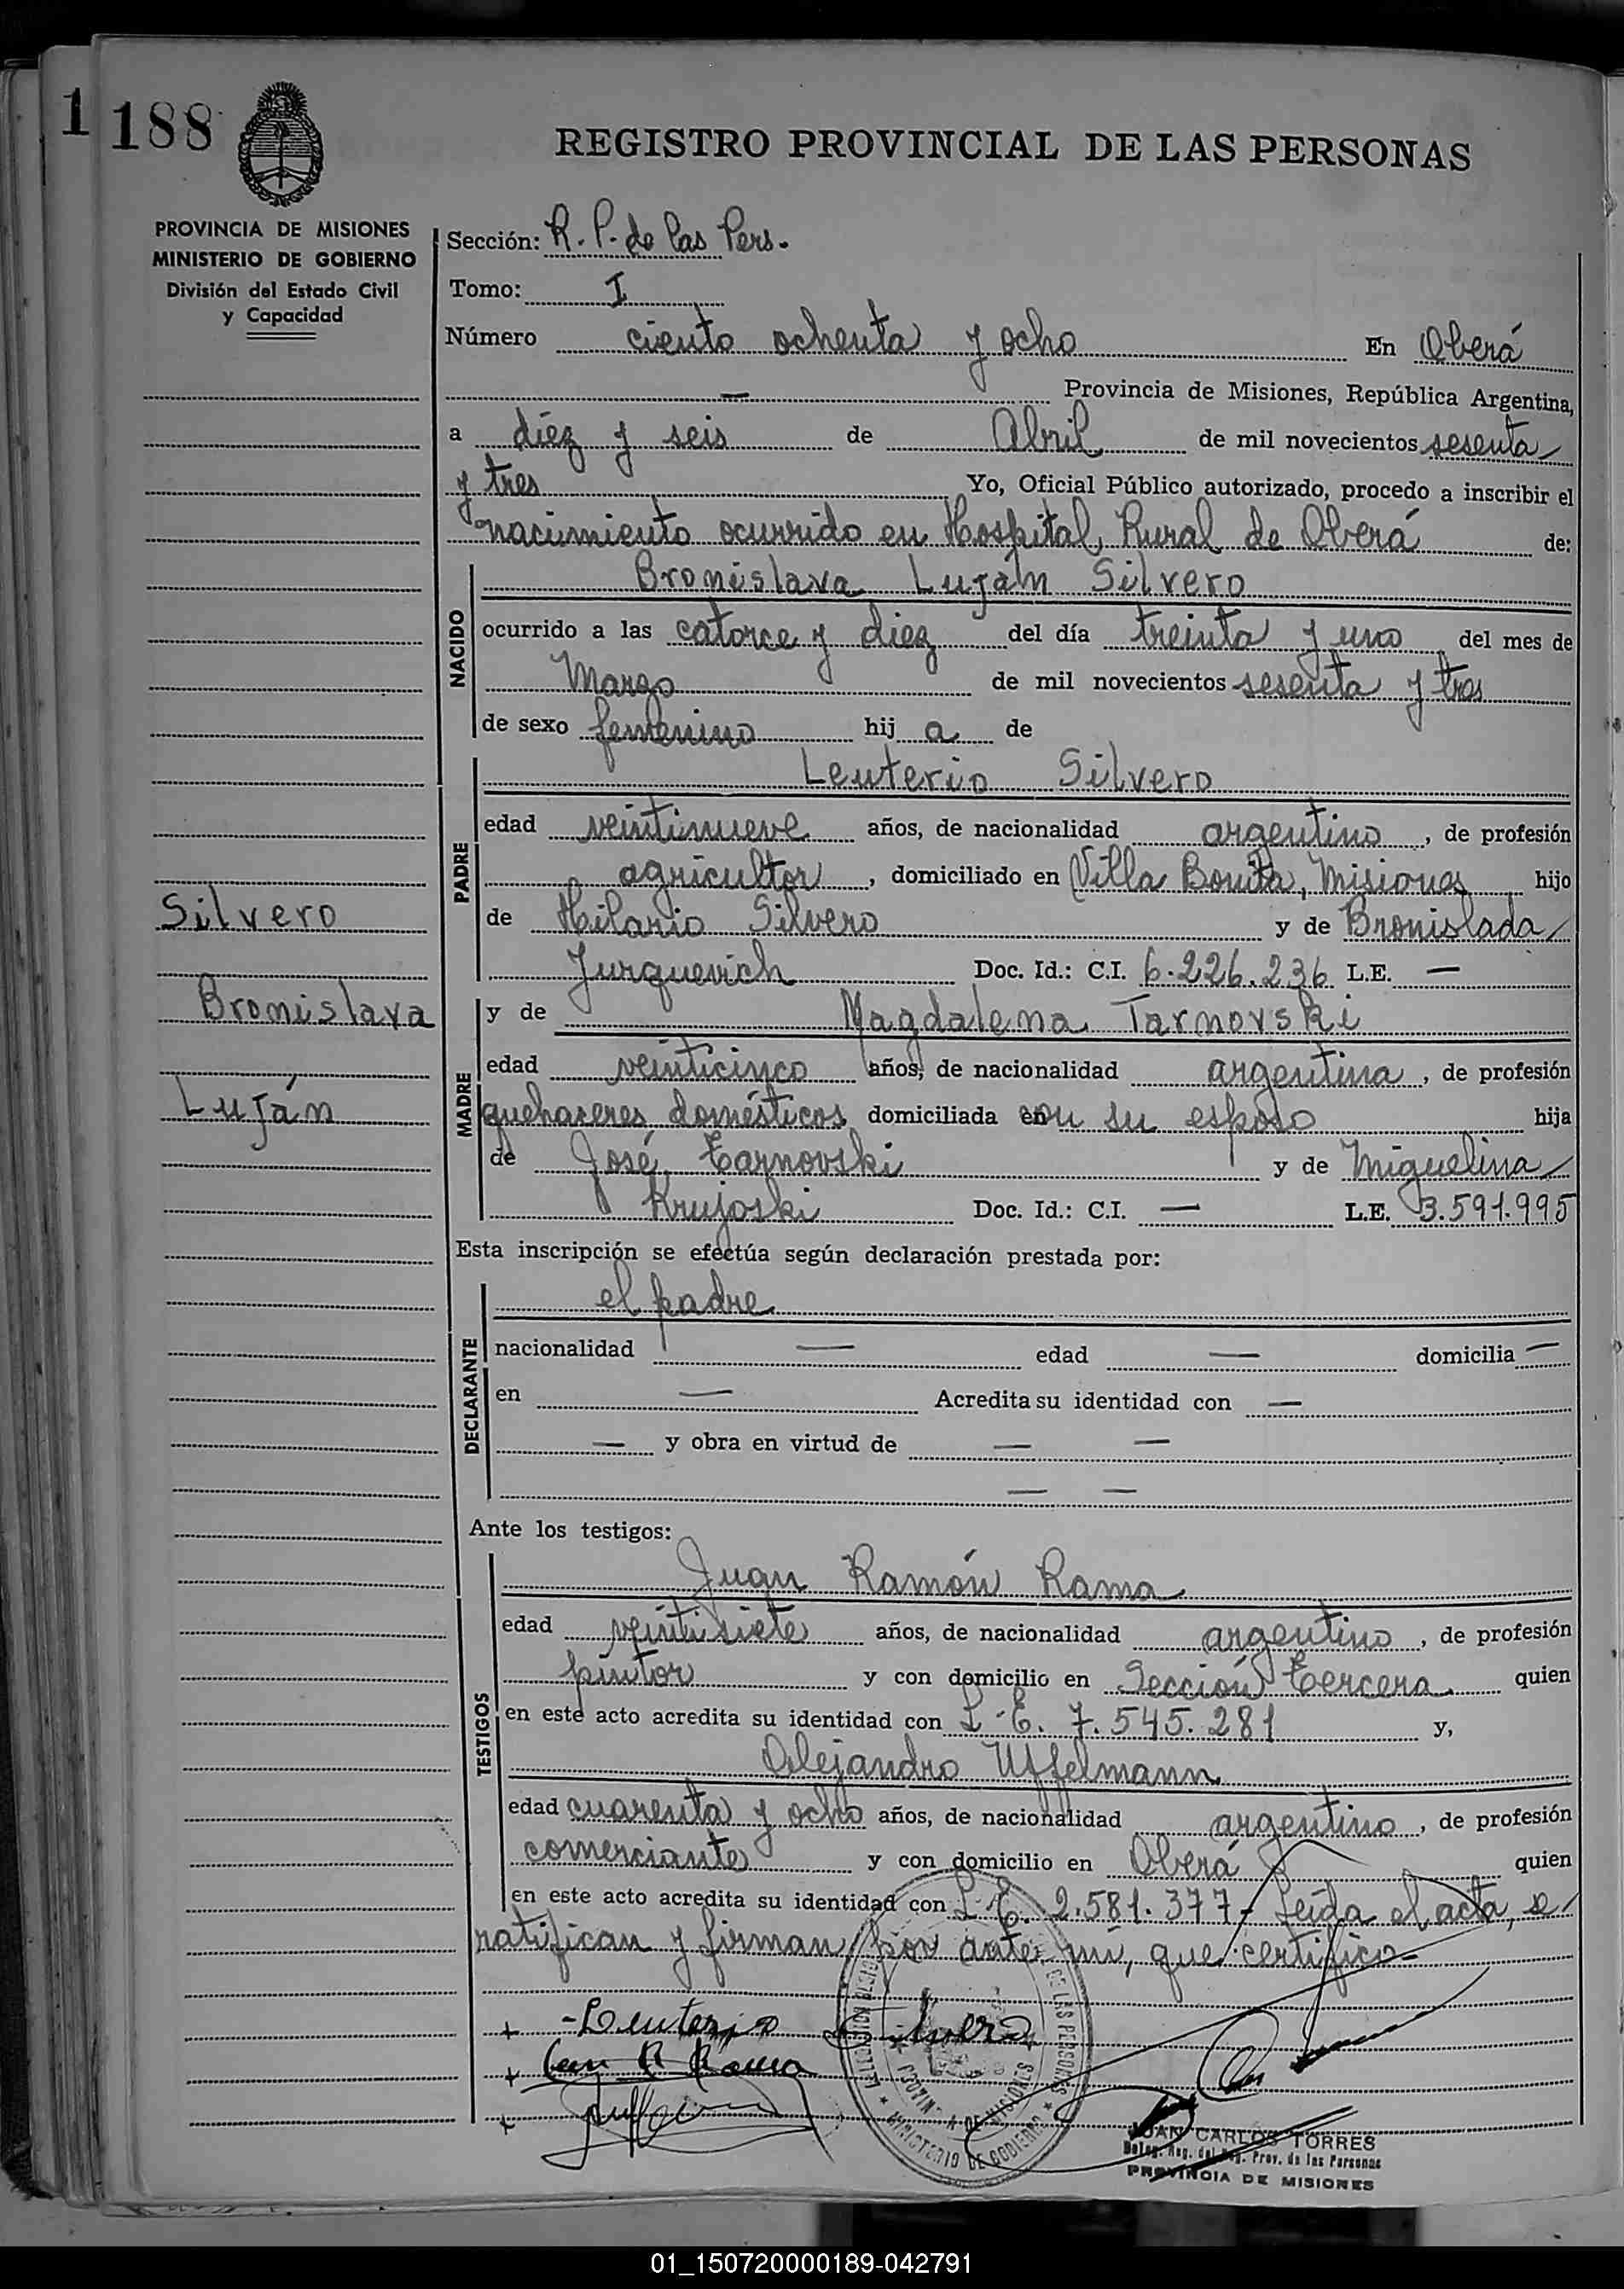 1
188
REGISTRO PROVINCIAL DE LAS PERSONAS
PROVINCIA DE MISIONES
MINISTERIO DE GOBIERNO
División del Estado Civil
y Capacidad
Sección: R. P. de las Pers.
Tomo: I
Número ciento ochenta y ocho En Oberá
— Provincia de Misiones, República Argentina,
a diéz y seis de Abril de mil novecientos sesenta
y tres Yo, Oficial Público autorizado, procedo a inscribir el
nacimiento ocurrido en Hospital Rural de Oberá de:
NACIDO
Bronislava Luján Silvero
ocurrido a las catorce y diez del día treinta y uno del mes de
Marzo de mil novecientos sesenta y tres
de sexo femenino hij a de
PADRE
Leuterio Silvero
edad veintinueve años, de nacionalidad argentino, de profesión
agricultor, domiciliado en Villa Bonita, Misiones hijo
de Hilario Silvero y de Bronislada
Jurquevich Doc. Id.: C.I. 6.226.236 L.E. —
Silvero
Bronislava
Luján
MADRE
y de Magdalena Tarnovski
edad veinticinco años, de nacionalidad argentina, de profesión
quehaceres domésticos domiciliada con su esposo hija
de José Tarnovski y de Miguelina
Krujoski Doc. Id.: C.I. — L.E. 3.591.995
Esta inscripción se efectúa según declaración prestada por:
DECLARANTE
el padre
nacionalidad — edad — domicilia —
en — Acredita su identidad con —
— y obra en virtud de — —
— —
Ante los testigos:
TESTIGOS
Juan Ramón Rama
edad veintisiete años, de nacionalidad argentino, de profesión
pintor y con domicilio en Sección Tercera quien
en este acto acredita su identidad con L.E. 7.545.281 y,
Alejandro Uffelmann
edad cuarenta y ocho años, de nacionalidad argentino, de profesión
comerciante y con domicilio en Oberá quien
en este acto acredita su identidad con L.E. 2.581.377- Leída el acta, se
ratifican y firman por ante mí, que certifico.-
+ -Leuterio Silvero
+ R Rama
+
DE LAS PERSONAS
PROVINCIA DE MISIONES
MINISTERIO DE GOBIERNO
JUAN CARLOS TORRES
Deleg. Reg. del Reg. Prov. de las Personas
PROVINCIA DE MISIONES
01_150720000189-042791